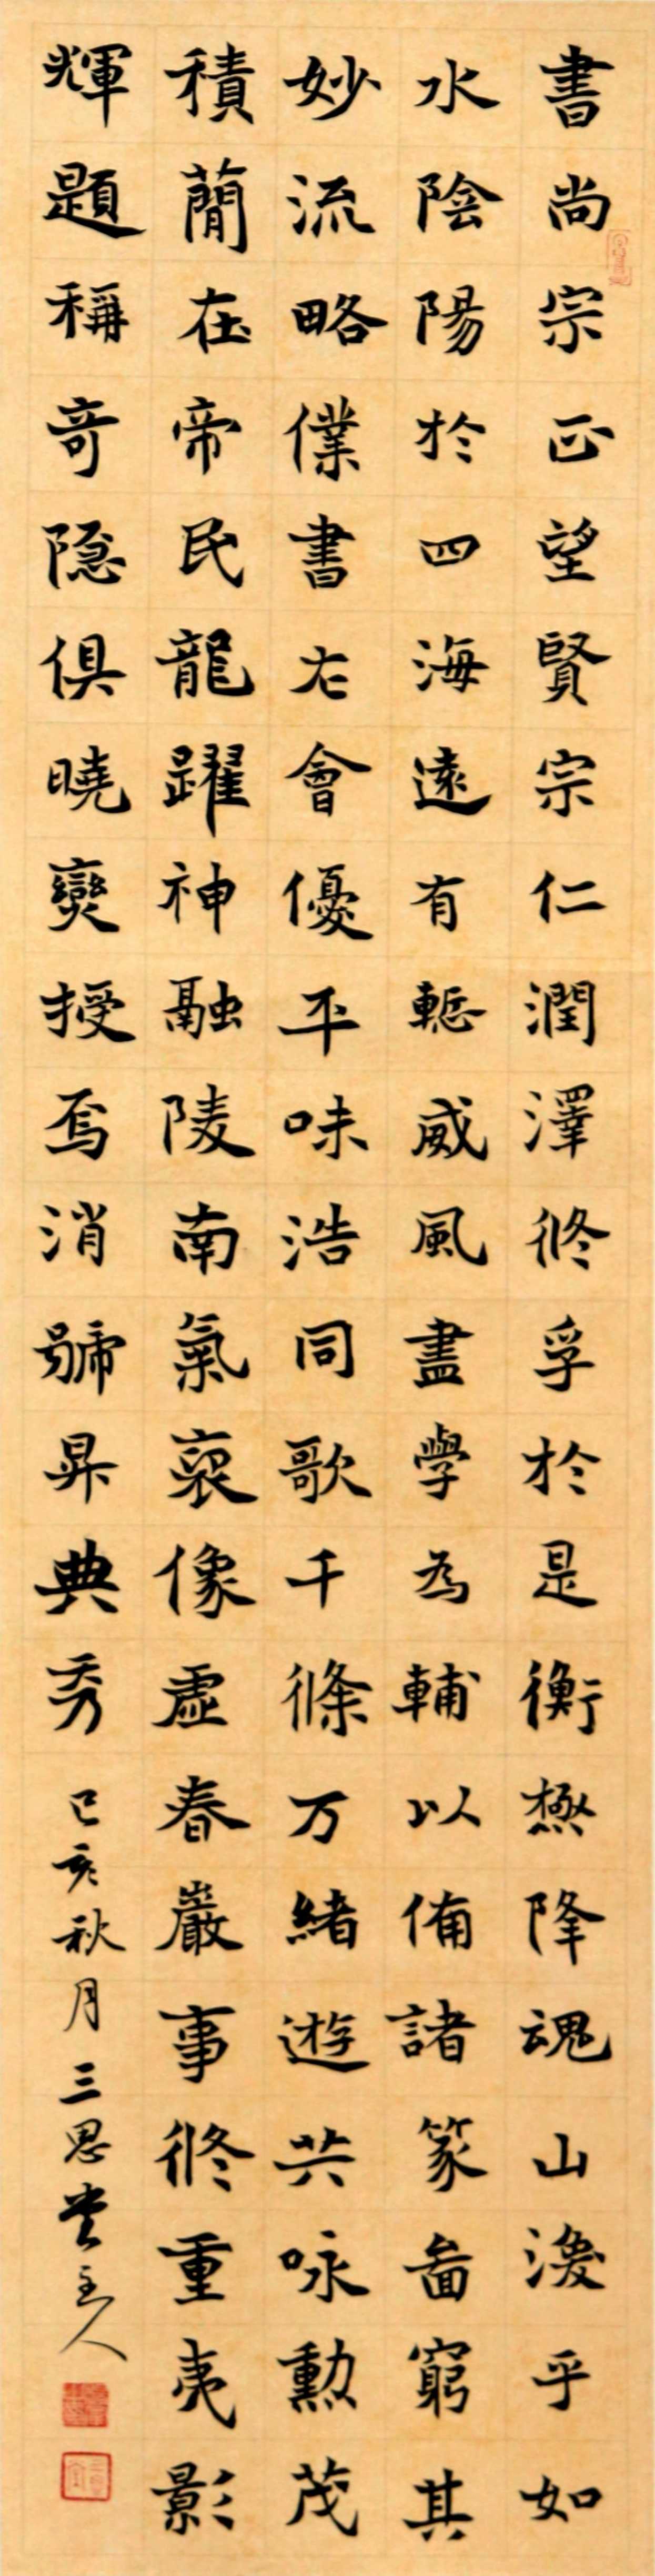 書尚宗正望賢宗仁潤澤俢孚於是衡楙降魂山濩乎如
水陰陽於四海遠有蹔威風盡學為輔以俻諸篆畵窮其
妙流略僕書右會優平味浩同歌千條万緒遊共咏勳茂
積蕳在帝民龍躍神融陵南氣裵像虛春巖事俢重夷影
輝題稱竒隱俱曉奱授焉消號昇典秀
己亥秋月三思堂主人